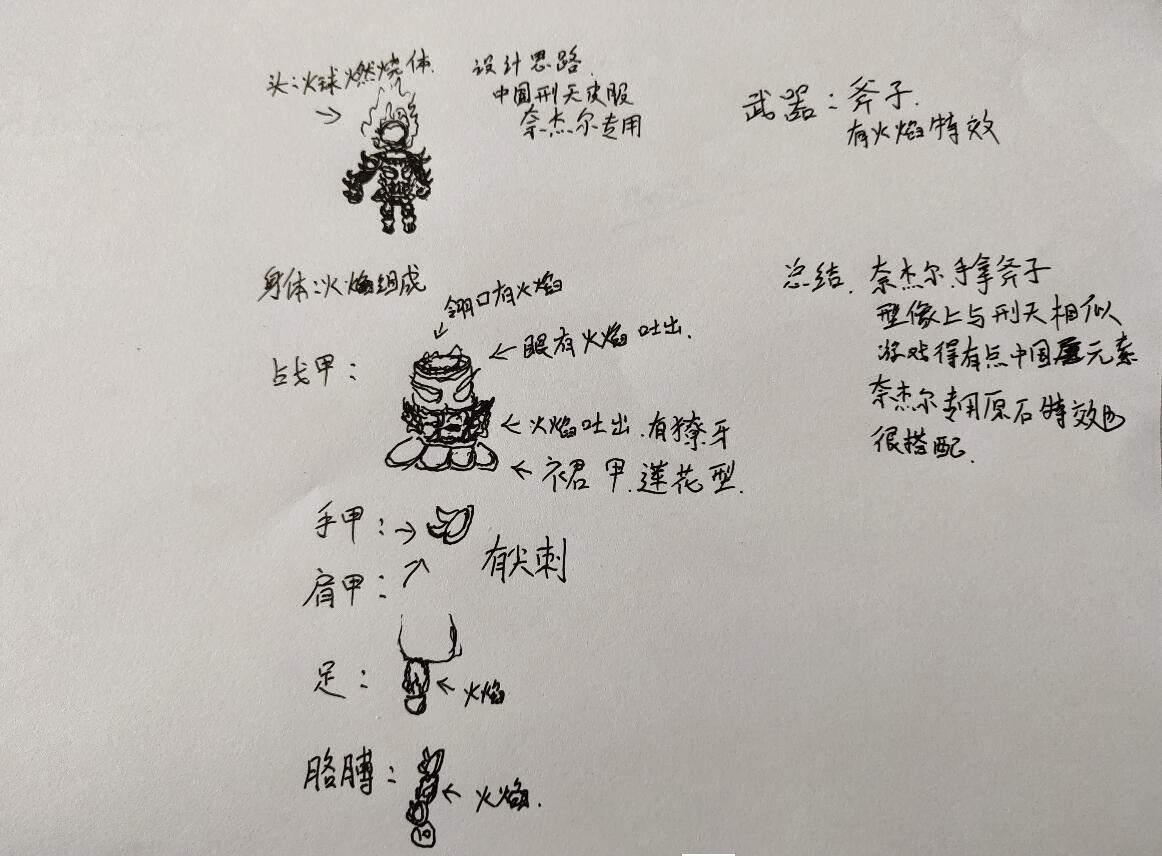 头:火球燃烧体
设计思路.
中国刑天皮服
奈杰尔专用
武器:斧子.
有火焰特效
身体:火焰组成
战甲:
领口有火焰
眼有火焰吐出.
火焰吐出.有獠牙
裙甲.莲花型.
手甲:
肩甲:
有尖刺
足:
火焰
胳膊:
火焰.
总结.奈杰尔手拿斧子
型像上与刑天相似
游戏得有点中国元素
奈杰尔专用原石特效也
很搭配.